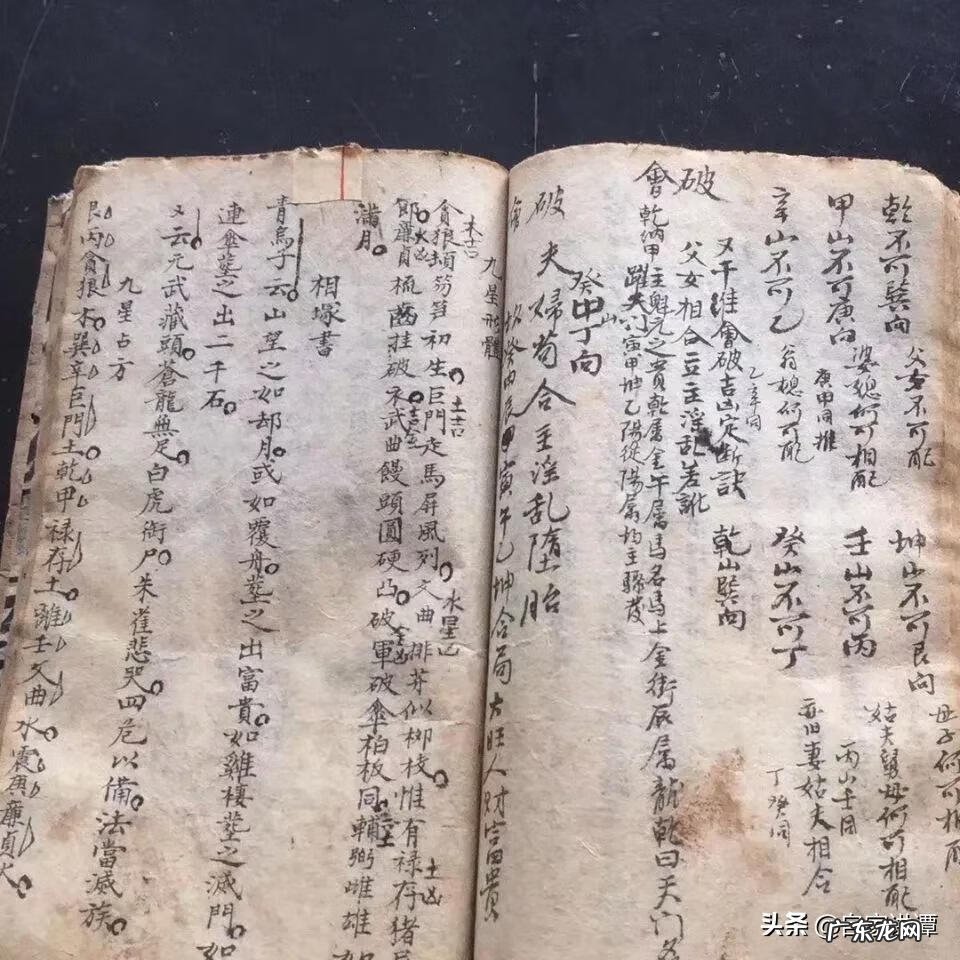 乾不可巽向 父女不可配 坤山不可艮向 母子何可相配
甲山不可庚向 婆媳何可相配 庚甲同推 壬山不可丙 丙山壬同
辛山不可乙 翁媳何可配 乙辛同 癸山不可丁 丁癸同
破 父女相合立主淫乱差訛 乾山巽向
又千維會破吉凶定断訣
會乾納甲主魁元之貴乾屬金午屬馬名馬上金街辰屬龍乾曰天門
躍天門寅甲坤乙陽從陽屬均主驟发
癸山丁向
破夫婦苟合主淫乱墮胎
甲寅午乙坤合局大旺人財富貴
九星形體
貪狼頓笏笋初生 木吉 巨門走馬屏風列 土吉 文曲排芽似柳枝 水星凶 惟有禄存猪 土凶
節 廉貞梳齒挂破衣 火凶 武曲饅頭圓硬凸 吉金 破軍破傘柏板同 金凶 輔弼雌雄如
满月
相塚書
青烏子云山望之如却月或如覆舟塟之出富貴如雞棲塟之滅門如
連傘塟之出二千石
又云元武藏頭蒼龍無足白虎啣尸朱雀悲哭四危以備法當滅族
九星占方
艮丙貪狼木巽辛巨門土乾甲禄存土離壬文曲水震庚廉貞火
头条
广东龙网